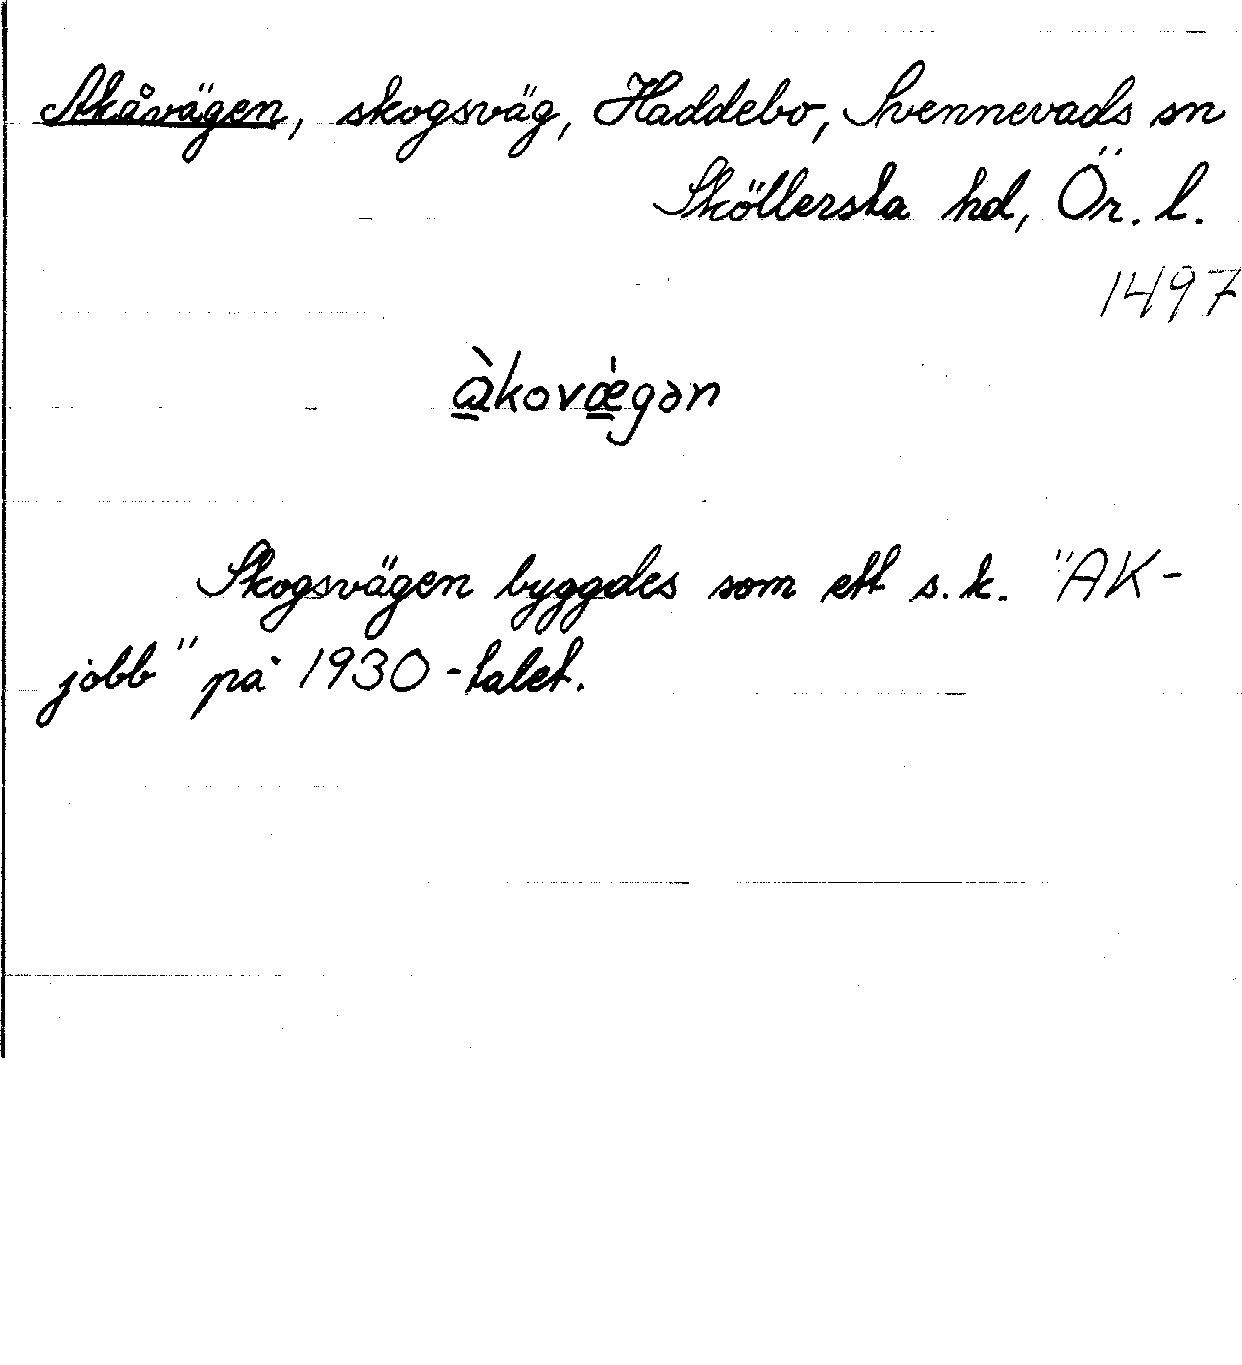 Akåvägen, skogsväg, Haddebo, Svennevads sn
Sköllersta hd, Ör. l.
1497
à̱kovǽ̱gən
Skogsvägen byggdes som ett s.k. "AK-
jobb" på 1930-talet.